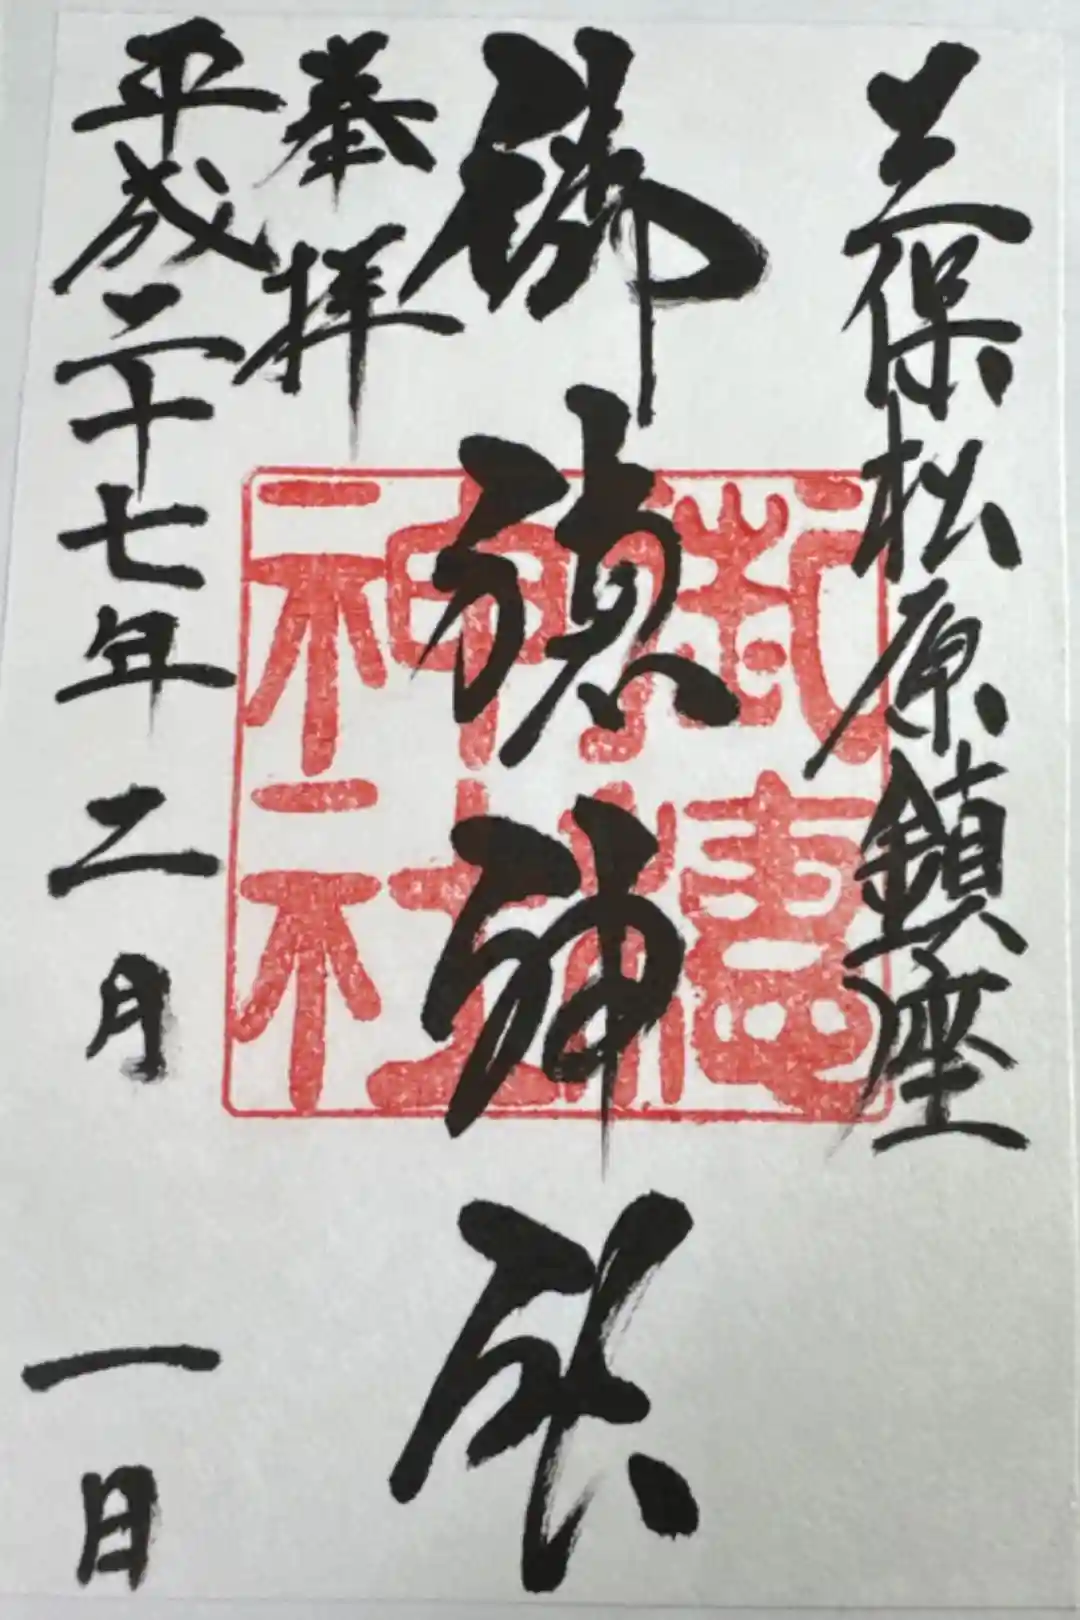 三保松原鎮座
御穂神社
奉拝
平成二十七年二月一日
御穂
神社